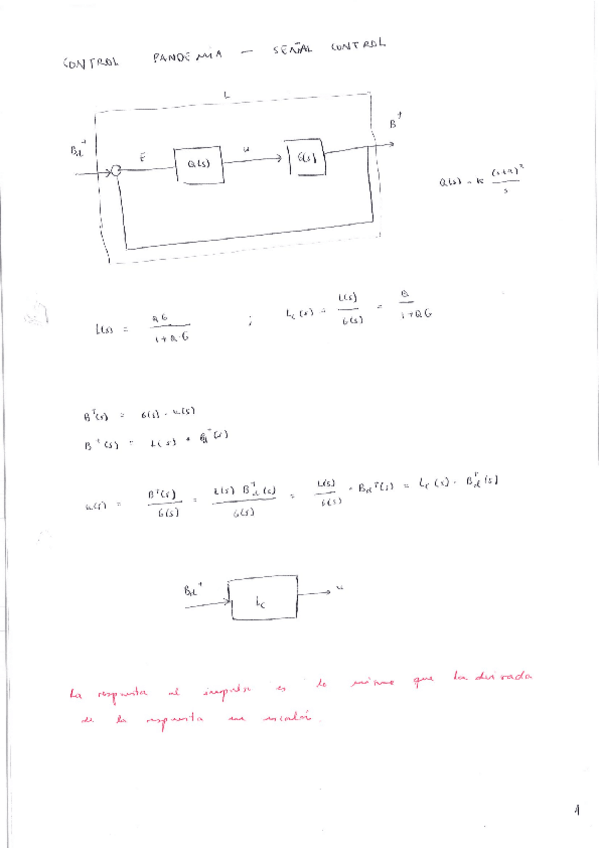 CONTROL PANDEMIA — SEÑAL CONTROL
L
Bd† E Q(s) u G(s) B†
Q(s) = K (s+a)² / s
L(s) = QG / 1+Q·G ; Lc(s) = L(s) / G(s) = Q / 1+QG
B†(s) = G(s) · u(s)
u(s) = B†(s) / G(s) = L(s) Bd†(s) / G(s) = L(s) / G(s) · Bd†(s) = Lc(s) · Bd†(s)
Bd† Lc u
La respuesta al impulso es lo mismo que la derivada
de la respuesta en escalón.
1